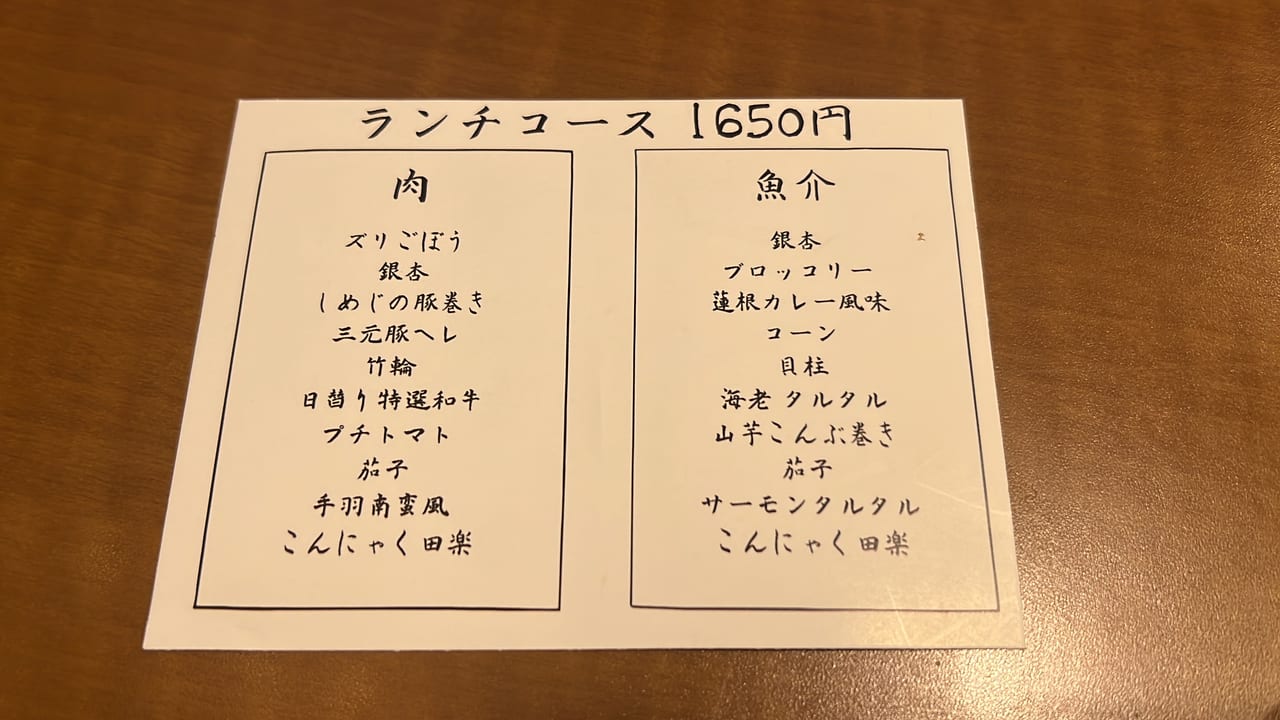 ランチコース 1650円
肉
ズリごぼう
銀杏
しめじの豚巻き
三元豚ヘレ
竹輪
日替り特選和牛
プチトマト
茄子
手羽南蛮風
こんにゃく田楽
魚介
銀杏
ブロッコリー
蓮根カレー風味
コーン
貝柱
海老タルタル
山芋こんぶ巻き
茄子
サーモンタルタル
こんにゃく田楽